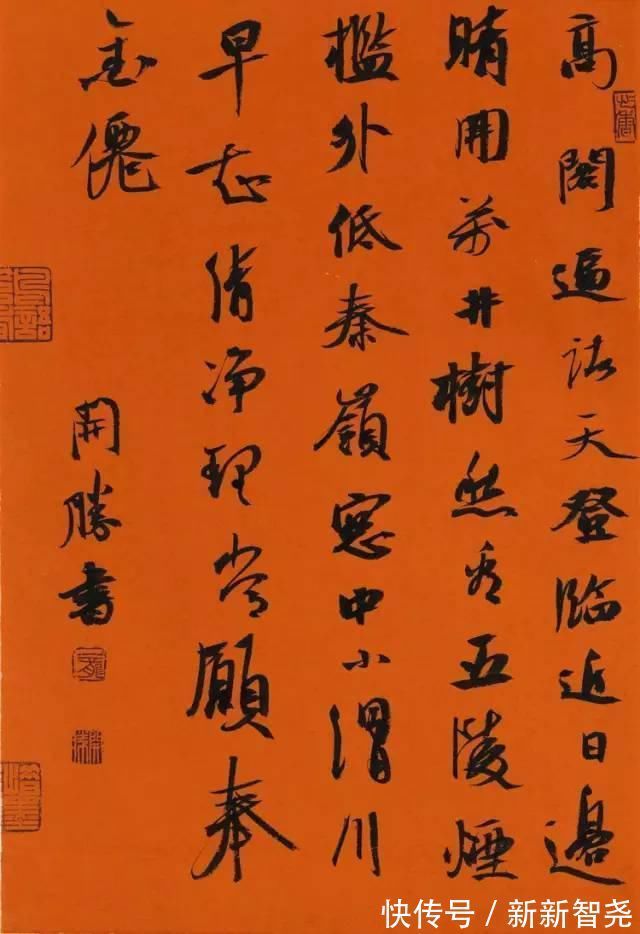 高閣逼諸天登臨近日邊
晴開萬井樹愁看五陵煙
檻外低秦嶺窓中小渭川
早知清净理常願奉
金僊
開勝書
快传号 / 新新智尧